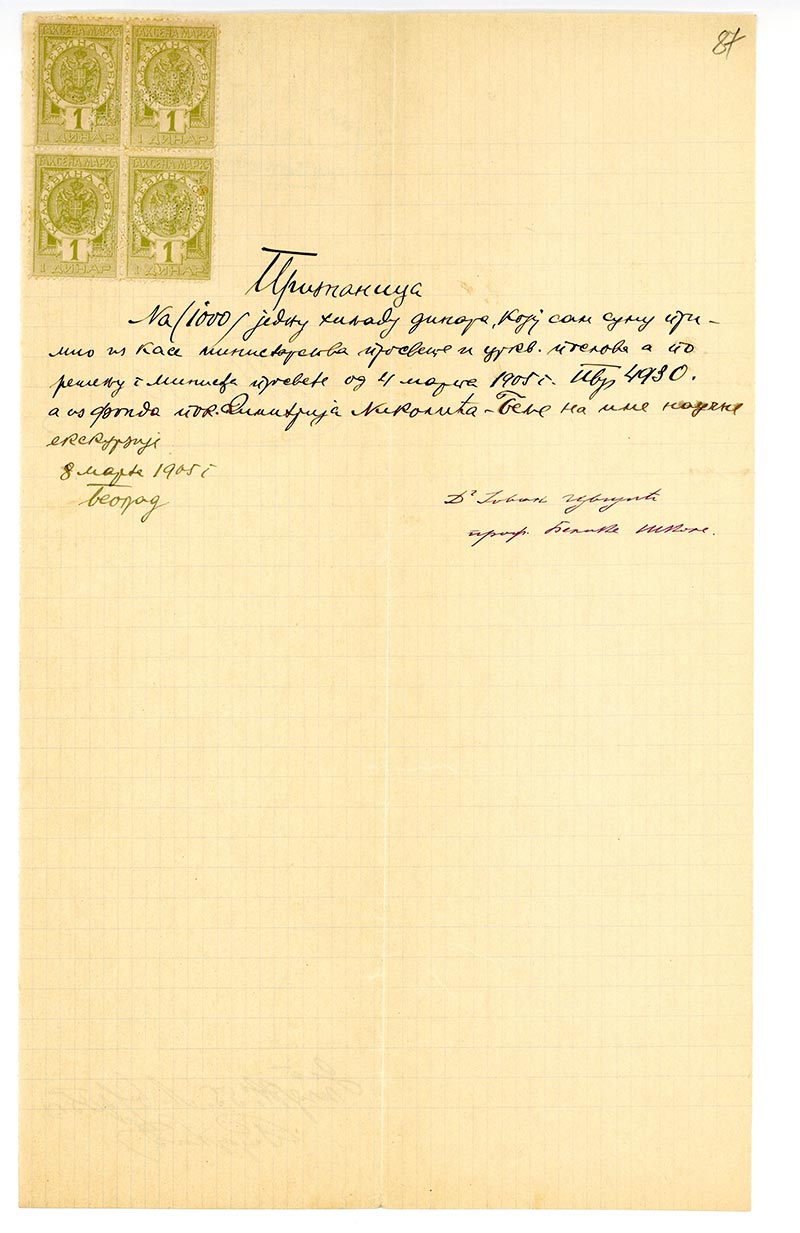 87
ТАКСЕНА МАРКА ТАКСЕНА МАРКА
КРАЉЕВИНА СРБИЈА КРАЉЕВИНА СРБИЈА
1 1
1 ДИНАР 1 ДИНАР
ТАКСЕНА МАРКА ТАКСЕНА МАРКА
КРАЉЕВИНА СРБИЈА КРАЉЕВИНА СРБИЈА
1 1
1 ДИНАР 1 ДИНАР
Признаница
На (1000) једну хиљаду динара, Коју сам суму при-
мио из касе министарства просвете и цркв. послова а по
решењу г Министра просвете од 4 марта 1905 г. Пбр 4930.
а из фонда пок. Димитрија Николића - Беље на име научне
екскурзије
8 марта 1905 г
Београд
Dr Јован Цвијић
проф. Велике Школе.